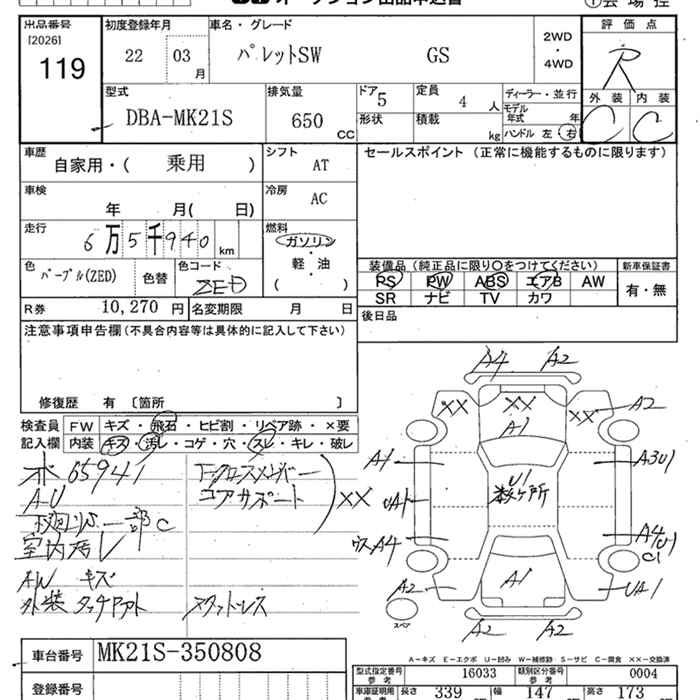 オークション出品申込書
出品番号 初度登録年月 車名・グレード 2WD・4WD 評価点
[2026]
119
22 03 月 パレットSW GS R
外装 内装
C C
型式 排気量 ドア 5 定員 4 人 ディーラー・並行
DBA-MK21S 650 CC 形状 積載 kg モデル年式 年
ハンドル 左 右
車歴 シフト セールスポイント (正常に機能するものに限ります)
自家用・( 乗用 ) AT
車検 冷房
年 月( 日) AC
走行 燃料
6万5千940 km ガソリン
軽・油
( )
色 色替 色コード 装備品 (純正品に限り○をつけてください) 新車保証書
パープル(ZED) ZED PS PW ABS エアB AW 有・無
SR ナビ TV カワ
R券 10,270 円 名変期限 月 日 後日品
注意事項申告欄 (不具合内容等は具体的に記入して下さい)
修復歴 有 〔箇所 〕
検査員 FW キズ・飛石・ヒビ割・リペア跡・×要
記入欄 内装 キズ・汚レ・コゲ・穴・スレ・キレ・破レ
65941 下クロスメンバー
AU コアサポート XX
一部C
AW キズ
外装 タッチアアト
A4 A2
XX XX XX A2
A1
A1 U1 A3U1
数ヶ所
UA1
A4 A4 U1
C1
A2 A1 UA1
スペア
A2 A2
車台番号 MK21S-350808
登録番号
A-キズ E-エクボ U-凹み W-補修跡 S-サビ C-腐食 XX-交換済
型式指定番号 参考 16033 類別区分番号 参考 0004
車庫証明用 参考 長さ 339 幅 147 高さ 173